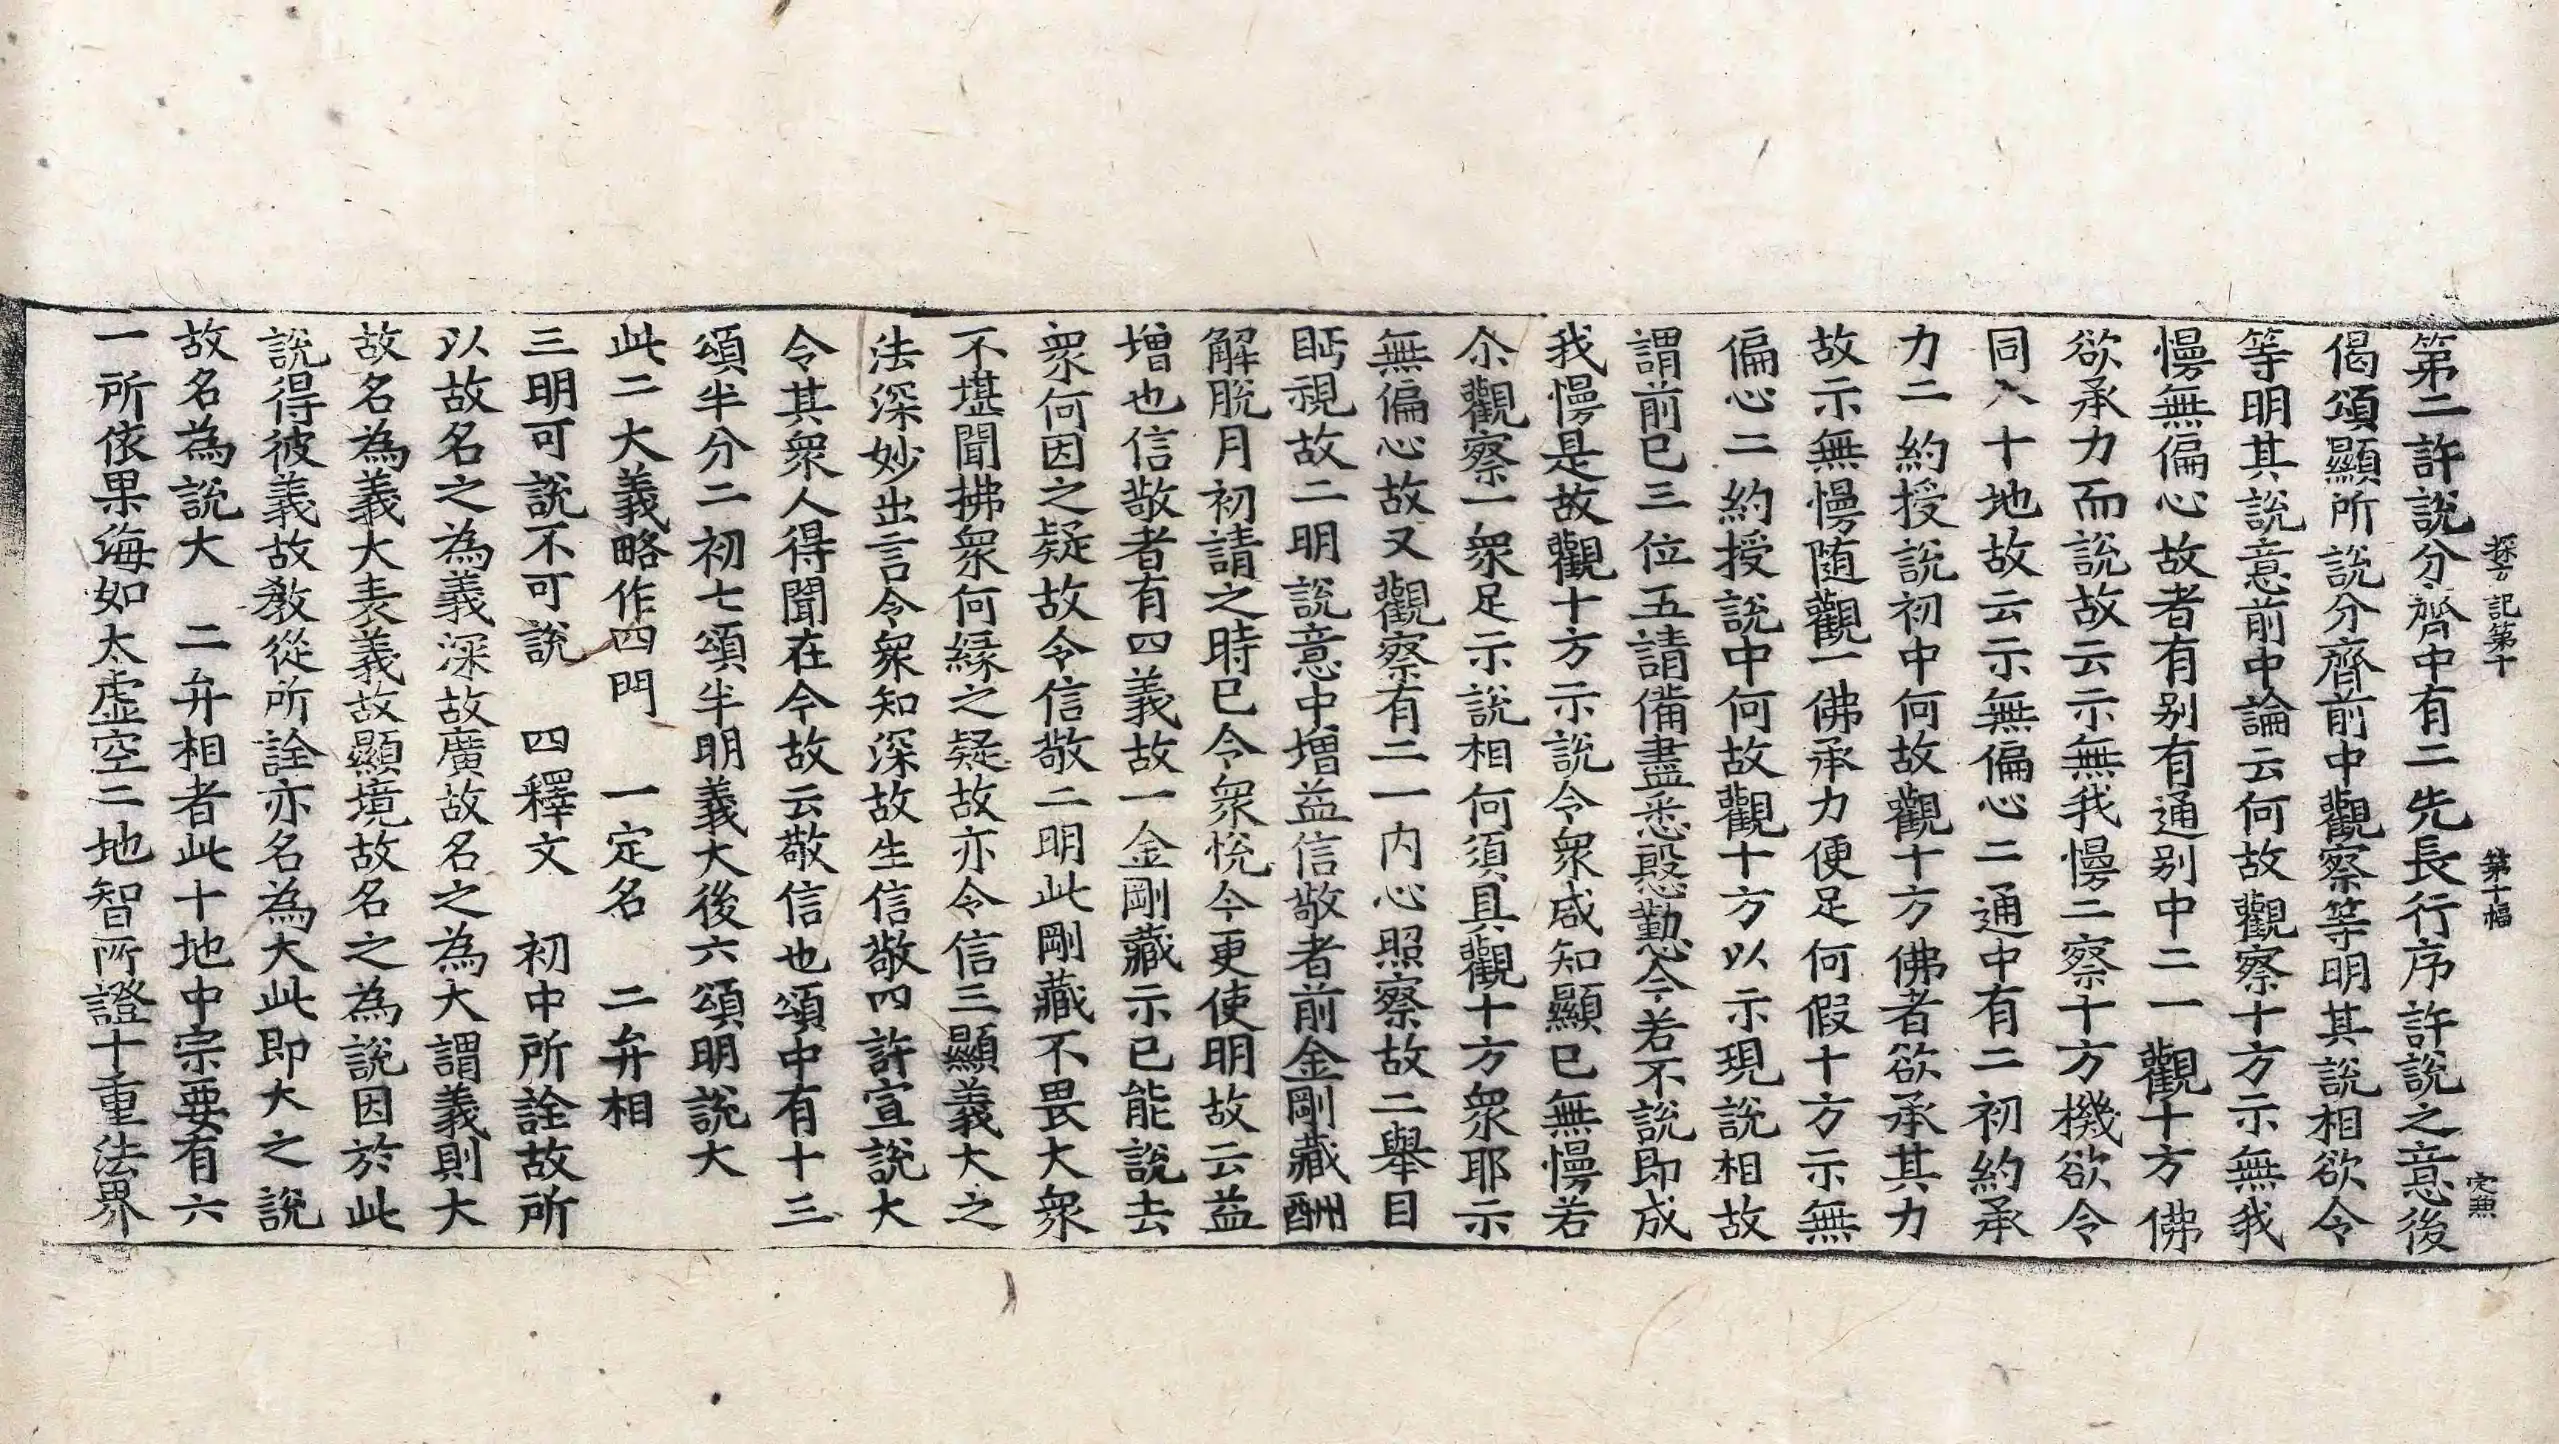 探玄記第十 第十幅 定魚
第二許說分齊中有二先長行序許說之意後
偈頌顯所說分齊前中觀察等明其說相欲令
等明其說意前中論云何故觀察十方示無我
慢無偏心故者有別有通別中二一觀十方佛
欲承力而說故云示無我慢二察十方機欲令
同入十地故云示無偏心二通中有二初約承
力二約授說初中何故觀十方佛者欲承其力
故示無慢随觀一佛承力便足何假十方示無
偏心二約授說中何故觀十方以示現說相故
謂前已三位五請備盡悉慇懃今若不說即成
我慢是故觀十方示說令衆咸知顯已無慢若
尒觀察一衆足示說相何須具觀十方衆耶示
無偏心故又觀察有二一内心照察故二舉目
眄視故二明說意中增益信敬者前金剛藏酬
解脫月初請之時已令衆悅今更使明故云益
增也信敬者有四義故一金剛藏示已能說去
衆何因之疑故令信敬二明此剛藏不畏大衆
不堪聞拂衆何縁之疑故亦令信三顯義大之
法深妙出言令衆知深故生信敬四許宣說大
令其衆人得聞在今故云敬信也頌中有十三
頌半分二初七頌半明義大後六頌明說大
此二大義略作四門 一定名 二弁相
三明可說不可說 四釋文 初中所詮故所
以故名之為義深故廣故名之為大謂義則大
故名為義大表義故顯境故名之為說因於此
說得彼義故教從所詮亦名為大此即大之說
故名為說大 二弁相者此十地中宗要有六
一所依果海如太虛空二地智所證十重法界